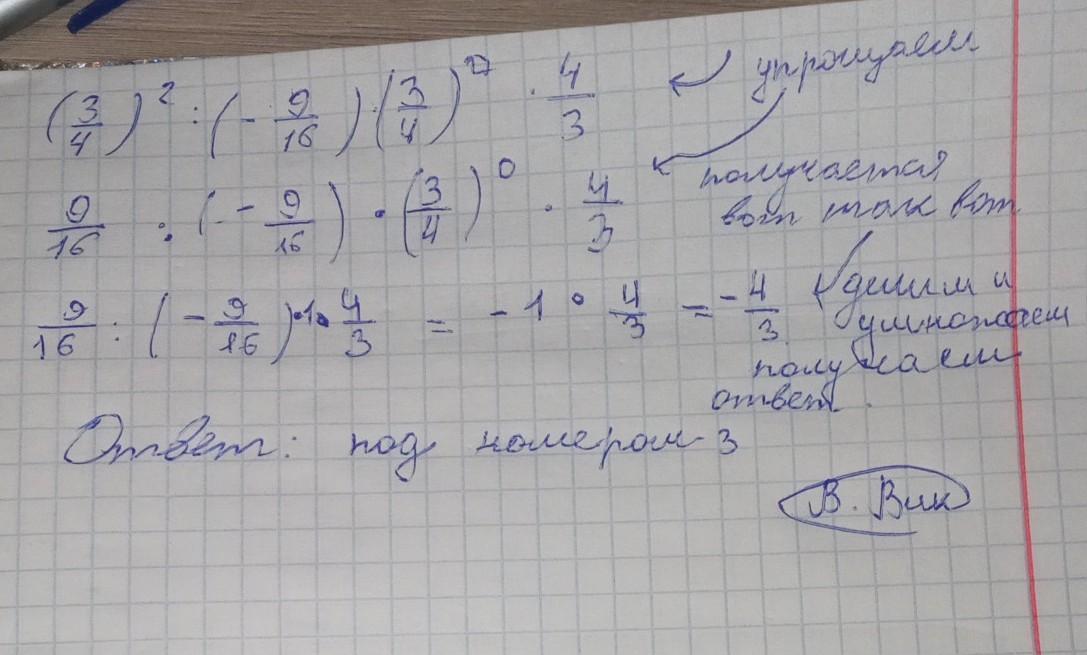 (3/4)² : (- 9/16) · (3/4)⁰ · 4/3 упрощаем
9/16 : (- 9/16) · (3/4)⁰ · 4/3 получается
вот так вот
9/16 : (- 9/16) · 1 · 4/3 = - 1 · 4/3 = - 4/3 делим и
умножаем
получаем
ответ.
Ответ: под номером 3
В. Вик